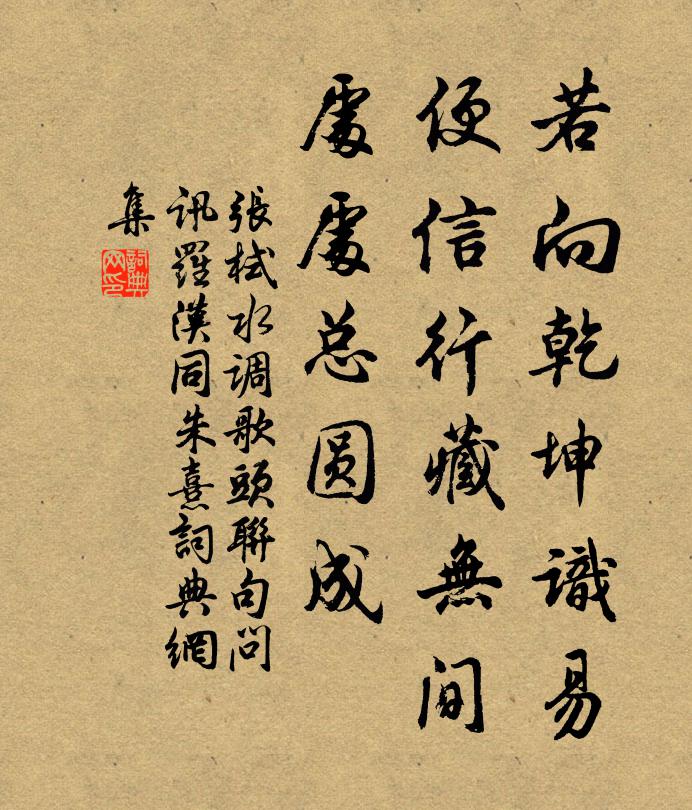 若向乾坤識易
便信行藏無间
處處总圆成
張栻水调歌頭聯句問
訊羅漢同朱熹詞典網
集
詞典
网印